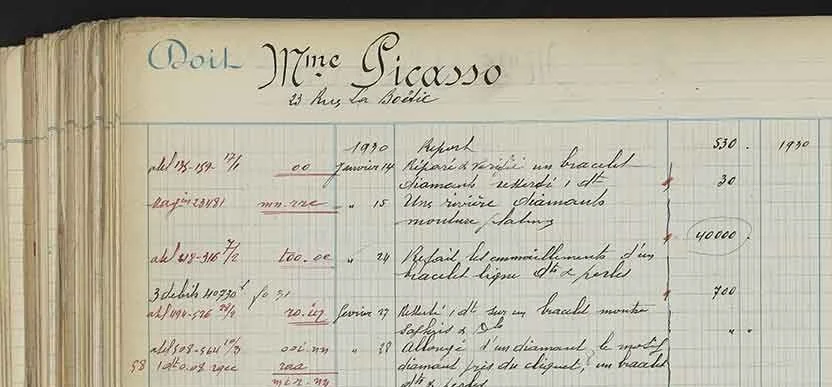 Doit Mme Picasso
23 Rue La Boétie
1930 Report 530. 1930
atel 135-159 17/1 00 Janvier 14 Réparé & vérifié un bracelet
diamants resserti 1 dt 30
magin 23481 mn-rre " 15 Une rivière diamants
monture platine 40000.
atel 218-316 7/2 too-oe " 24 Refait les emmaillements d'un
bracelet ligne dts & perles 700
3 debits 40730f fo 31
ro.ug fevrier 27 Resserti 1 dt sur un bracelet montre
Saphirs & Dts " "
atel 508-564 10/3 ooi-nn " 28 Allongé d'un diamant le motif
58 raa diamant près du cliquet, un bracelet
dts & perles